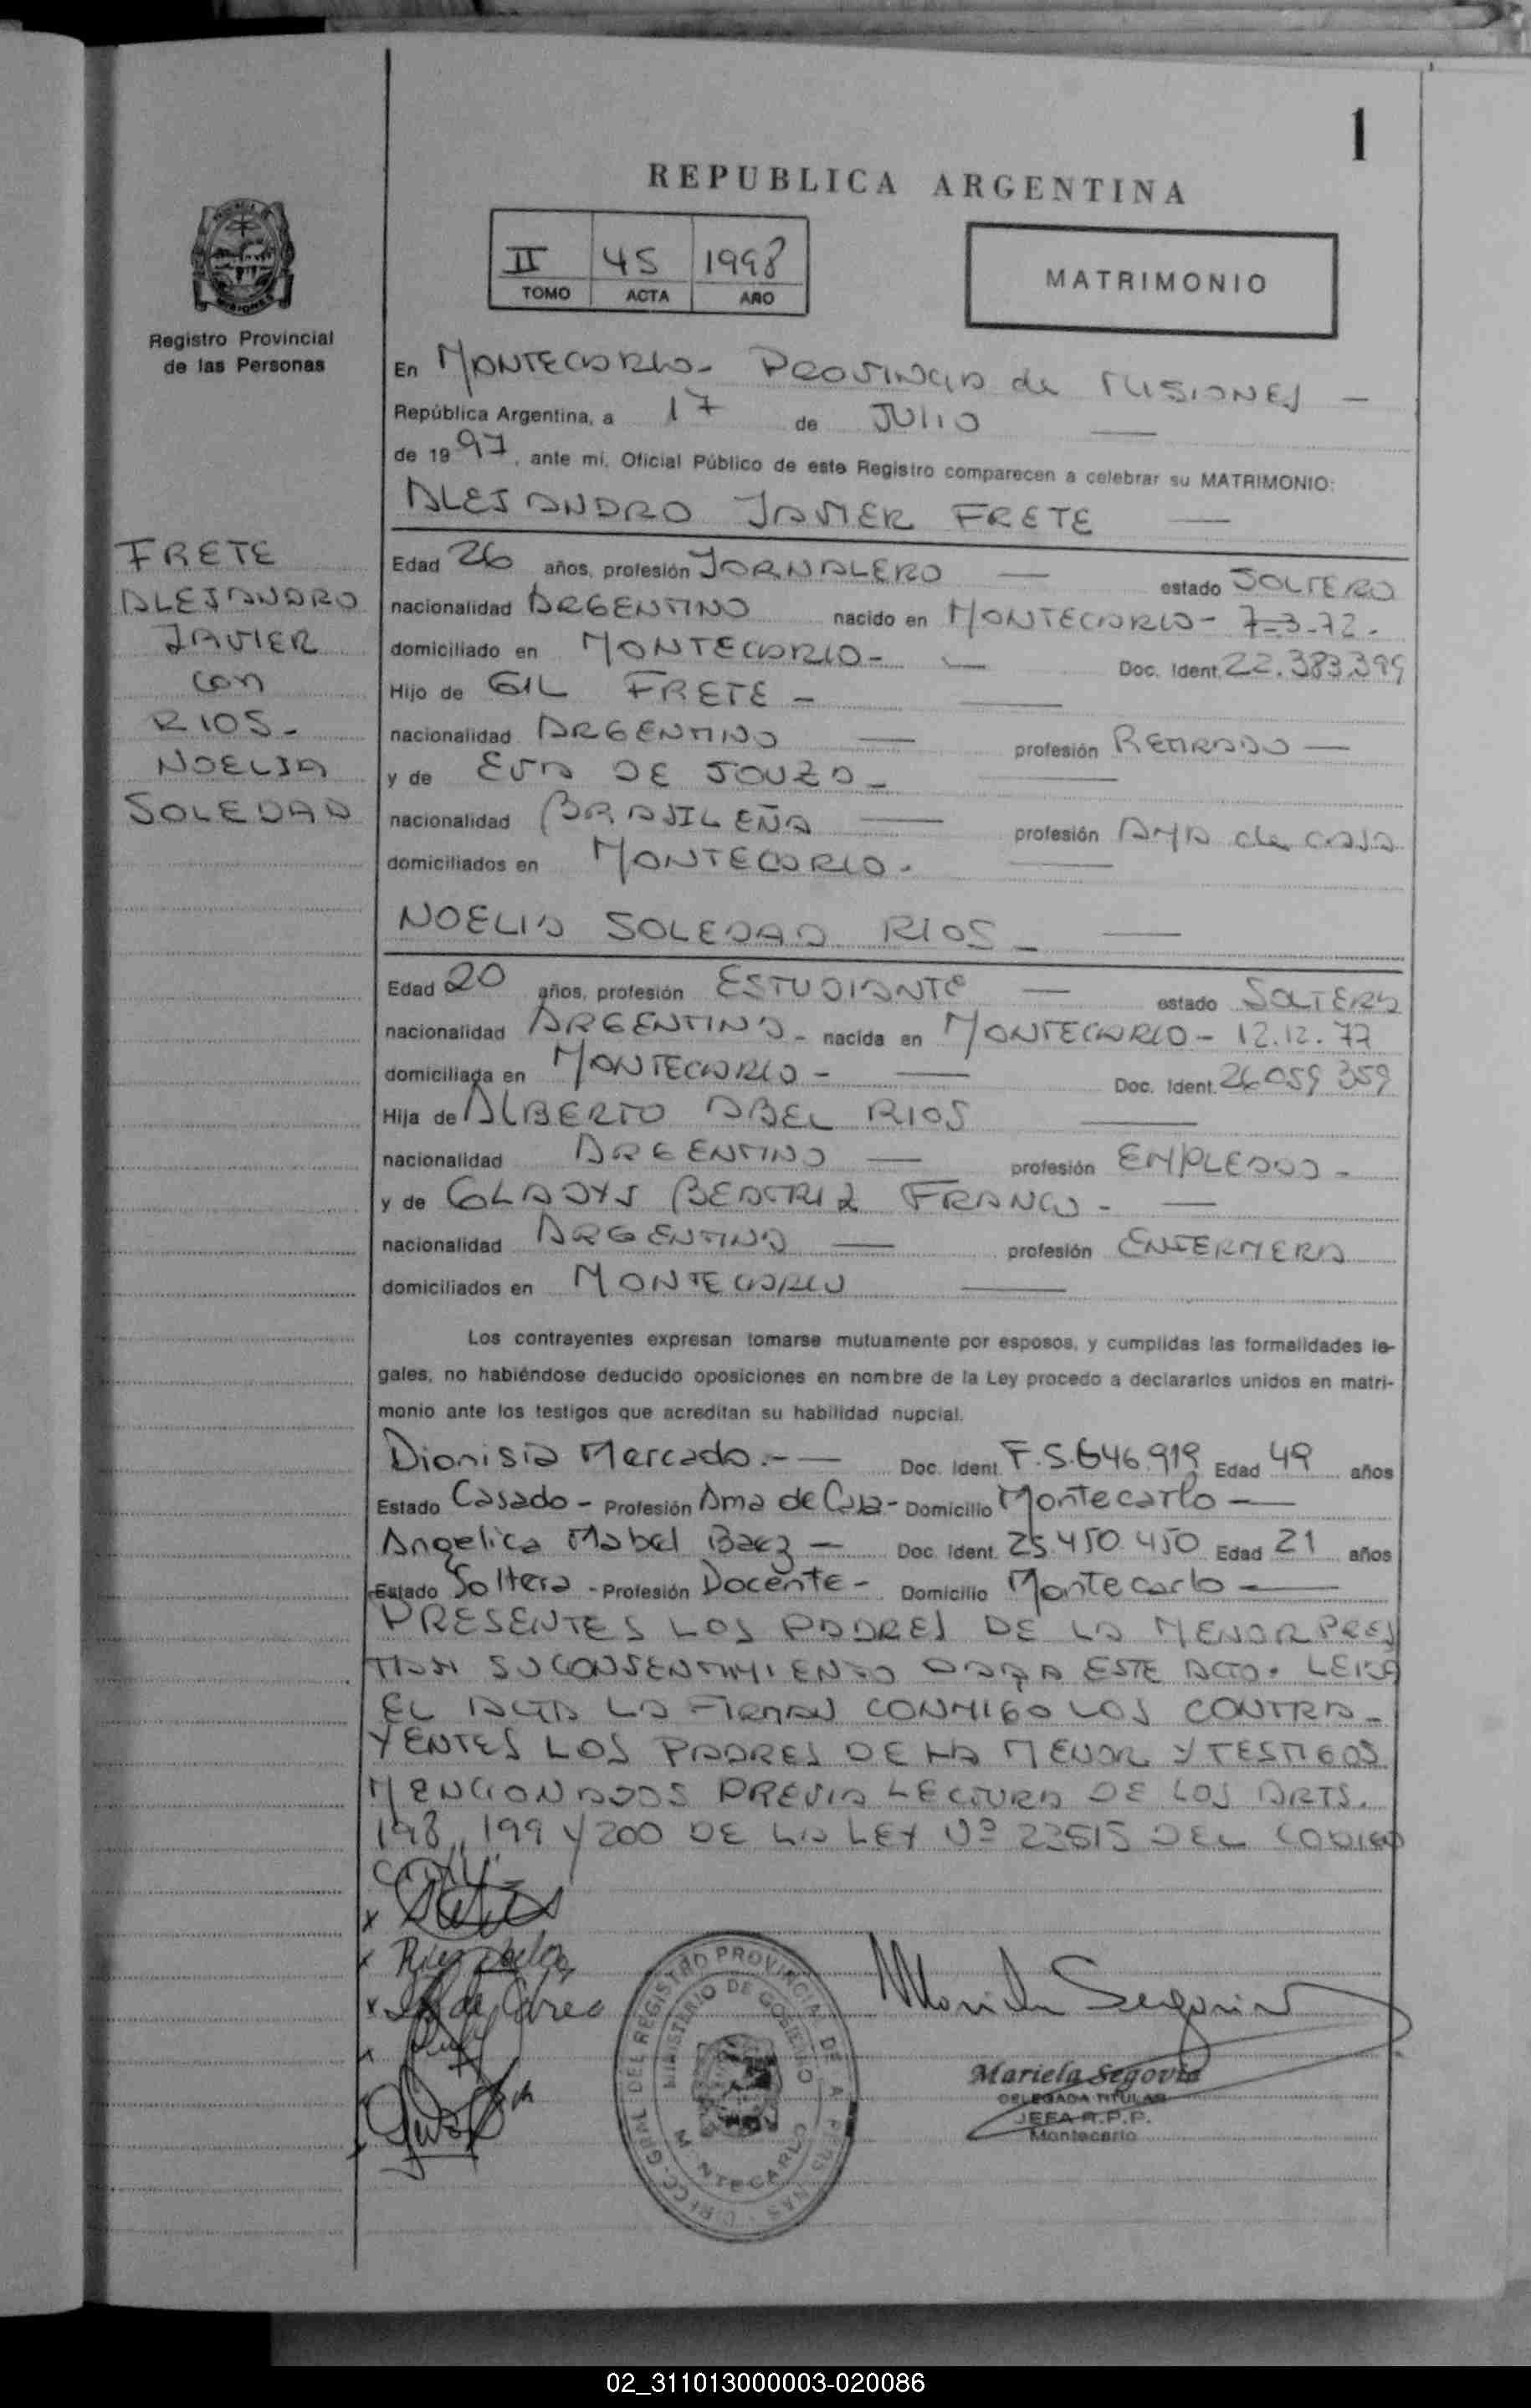 1
REPUBLICA ARGENTINA
II 45 1998
TOMO ACTA AÑO
MATRIMONIO
Registro Provincial
de las Personas
FRETE
ALEJANDRO
JAVIER
con
RIOS-
NOELIA
SOLEDAD
En MONTECARLO- PROVINCIA de MISIONES -
República Argentina, a 17 de JULIO
de 1997, ante mi, Oficial Público de este Registro comparecen a celebrar su MATRIMONIO:
ALEJANDRO JAVIER FRETE
Edad 26 años, profesión JORNALERO estado SOLTERO
nacionalidad ARGENTINO nacido en MONTECARLO- 7-3-72.
domiciliado en MONTECARLO- Doc. Ident. 22.383.399
Hijo de GIL FRETE -
nacionalidad ARGENTINO profesión RETIRADO
y de EVA DE SOUZA -
nacionalidad BRASILEÑA profesión AMA de CASA
domiciliados en MONTECARLO.
NOELIA SOLEDAD RIOS -
Edad 20 años, profesión ESTUDIANTE estado SOLTERA
nacionalidad ARGENTINA - nacida en MONTECARLO - 12.12.77
domiciliada en MONTECARLO - Doc. Ident. 26059 359
Hija de ALBERTO ABEL RIOS
nacionalidad ARGENTINO profesión EMPLEADO -
y de GLADYS BEATRIZ FRANCO -
nacionalidad ARGENTINA profesión ENFERMERA
domiciliados en MONTECARLO
Los contrayentes expresan tomarse mutuamente por esposos, y cumplidas las formalidades le-
gales, no habiéndose deducido oposiciones en nombre de la Ley procedo a declararlos unidos en matri-
monio ante los testigos que acreditan su habilidad nupcial.
Dionisia Mercado.- Doc. Ident. F.5.646.919 Edad 49 años
Estado Casado - Profesión Ama de Casa - Domicilio Montecarlo -
Angelica Mabel Baez - Doc. Ident. 25.450.450 Edad 21 años
Estado Soltera - Profesión Docente - Domicilio Montecarlo -
PRESENTES LOS PADRES DE LA MENOR PRES
TAN SU CONSENTIMIENTO PARA ESTE ACTO. LEIDA
EL ACTA LA FIRMAN CONMIGO LOS CONTRA-
YENTES LOS PADRES DE LA MENOR Y TESTIGOS
MENCIONADOS PREVIA LECTURA DE LOS ARTS.
198, 199 Y 200 DE LA LEY Nº 23515 DEL CODIGO
CIVIL.
DIRECC. GRAL. DEL REGISTRO PROVINCIAL DE LA PERSONAS
MINISTERIO DE GOBIERNO
MONTECARLO
Mariela Segovia
DELEGADA TITULAR
JEFA R.P.P.
Montecarlo
02_311013000003-020086